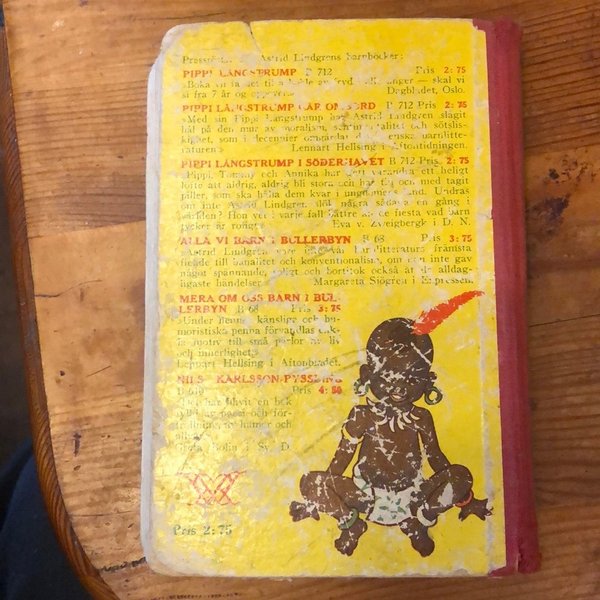 Astrid Lindgrens barnböcker:
PIPPI LÅNGSTRUMP B 712 Pris 2: 75
skal vi
si fra 7 år og oppover. Dagbladet, Oslo.
PIPPI LÅNGSTRUMP GÅR OMBORD B 712 Pris 2: 75
»Med sin Pippi Långstrump har Astrid Lindgren slagit
hål på den mur av moralism, sentimentalitet och sötslis-
kighet, som i decennier omgärdat den svenska barnlitte-
raturen.» Lennart Hellsing i Aftontidningen.
PIPPI LÅNGSTRUMP I SÖDERHAVET B 712 Pris 2: 75
»Pippi, Tommy och Annika har gett varandra ett heligt
löfte att aldrig, aldrig bli stora och har och med tagit
piller, som ska hålla dem kvar i ungdomens land. Undras
om inte Astrid Lindgren en gång i
världen? Hon vet i varje fall bättre än de flesta vad barn
tycker är roligt.» Eva v. Zweigbergk i D. N.
ALLA VI BARN I BULLERBYN B 68 Pris 3: 75
»Astrid Lindgren, vår barnlitteraturs främsta
fiende till banalitet och konventionalism, om inte gav
något spännande, roligt och också åt de alldag-
ligaste händelser.» Margareta Sjögren i Expressen.
MERA OM OSS BARN I BUL-
LERBYN B 68 Pris 3: 75
»Under denna känsliga och hu-
moristiska penna förvandlas enk-
la motiv till små pärlor av liv
och innerlighet.»
Lennart Hellsing i Aftonbladet.
NILS KARLSSON-PYSSLING
Pris 4: 50
en bok
och för-
humor och
i Sv. D.
Pris 2: 75